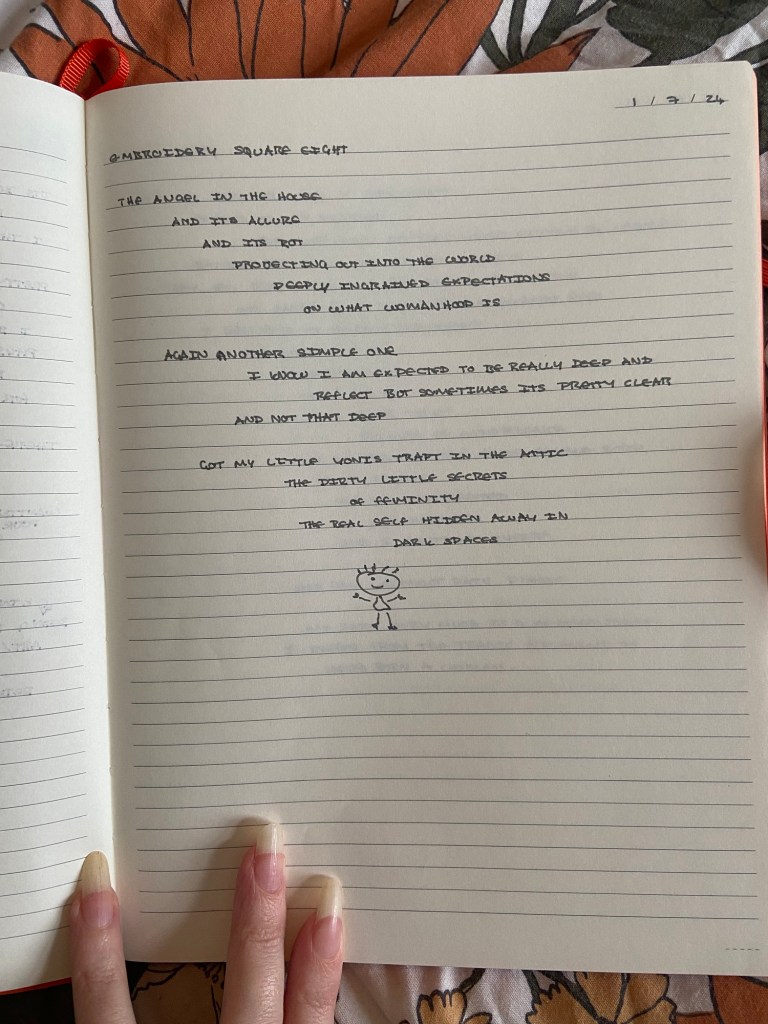 1 / 7 / 24
EMBROIDERY SQUARE EIGHT
THE ANGEL IN THE HOUSE
AND ITS ALLURE
AND ITS ROT
PROJECTING OUT INTO THE WORLD
DEEPLY INGRAINED EXPECTATIONS
ON WHAT WOMANHOOD IS
AGAIN ANOTHER SIMPLE ONE
I KNOW I AM EXPECTED TO BE REALLY DEEP AND
REFLECT BUT SOMETIMES ITS PRETTY CLEAR
AND NOT THAT DEEP
GOT MY LITTLE YONIS TRAPT IN THE ATTIC
THE DIRTY LITTLE SECRETS
OF FEMINITY
THE REAL SELF HIDDEN AWAY IN
DARK SPACES